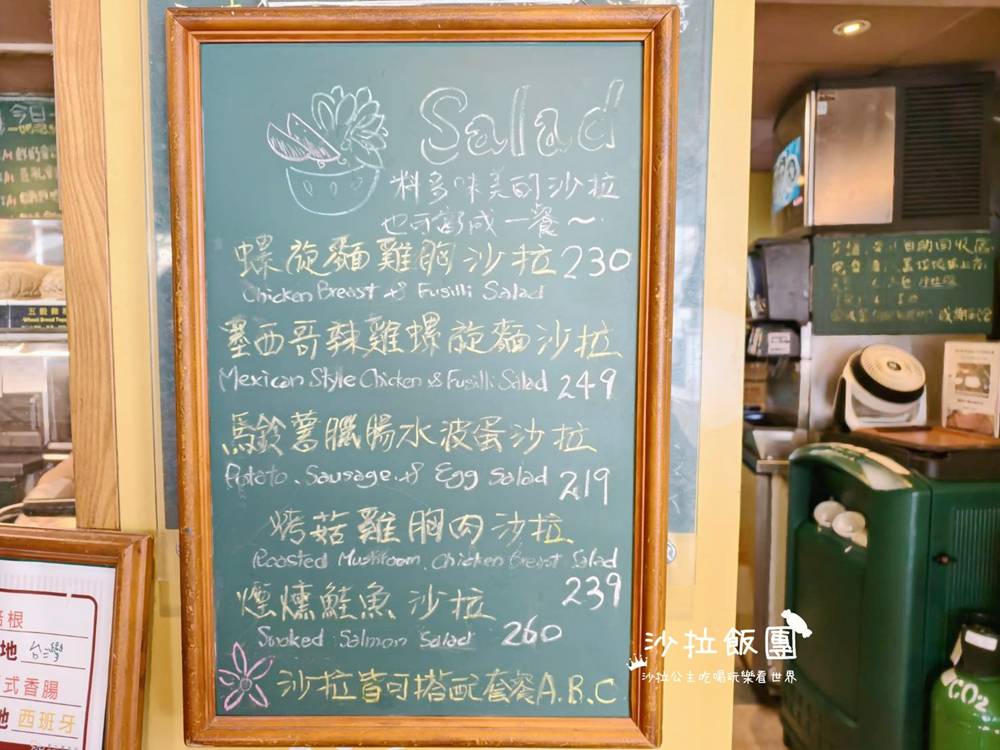 Salad
料多味美的沙拉
也可當成一餐~
螺旋麵雞胸沙拉 230
Chicken Breast & Fusilli Salad
墨西哥辣雞螺旋麵沙拉
Mexican Style Chicken & Fusilli Salad 249
馬鈴薯臘腸水波蛋沙拉
Potato、Sausage & Egg Salad 219
烤菇雞胸肉沙拉
Roasted Mushroom、Chicken Breast Salad
239
煙燻鮭魚沙拉
Smoked Salmon Salad 260
沙拉皆可搭配套餐A.B.C
今日
五穀雜
Wheat Bread
培根
地 台灣
式香腸
地 西班牙
自助回收區
感謝
CO2
沙拉飯團
沙拉公主吃喝玩樂看世界